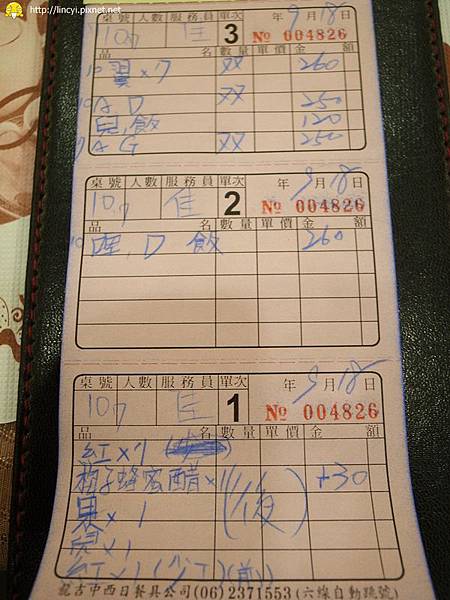 http://lincyi.pixnet.net
桌號 人數 服務員 單次 年 9月18日
107 佳 3 № 004826
品 名 數量 單價 金 額
翼×7 260
A,D 250
兒,飯 120
A G 250
桌號 人數 服務員 單次 年 9月18日
107 佳 2 № 004826
品 名 數量 單價 金 額
哩,D 飯 260
桌號 人數 服務員 單次 年 9月18日
107 佳 1 № 004826
品 名 數量 單價 金 額
紅×1
梅子蜂蜜醋×1 (後) +30
果×1
兒×1
紅×1 (少工) (前)
龍吉中西日餐具公司(06)2371553 (六線自動跳號)